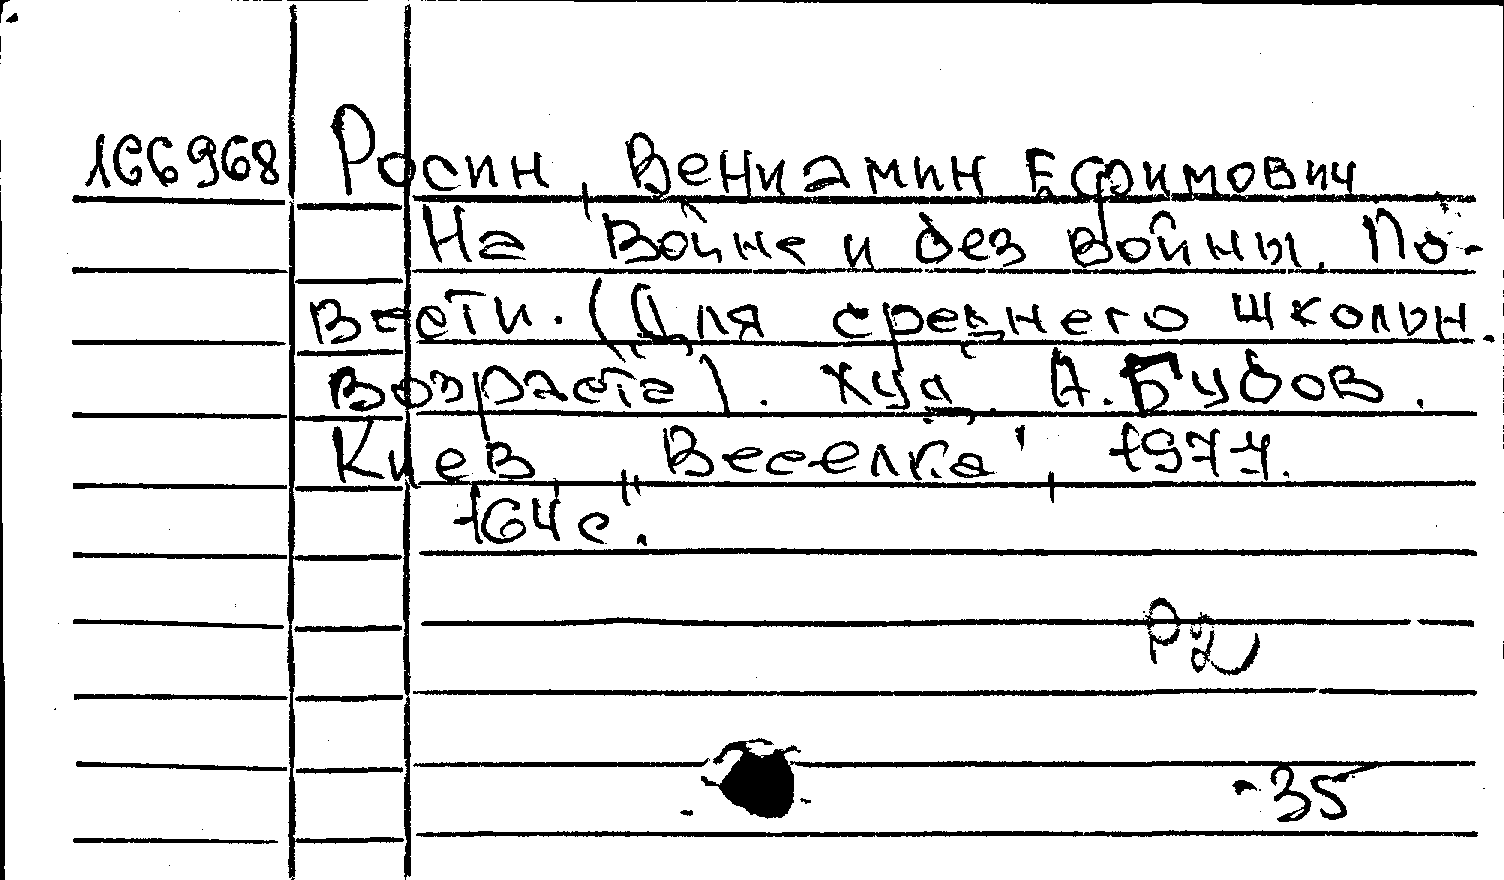 166968 Росин, Вениамин Ефимович
На войне и без войны. По-
вести. (Для среднего школьн.
возраста). Худ. А. Бубов.
Киев, „Веселка", 1977.
164 с.
Р2
-35